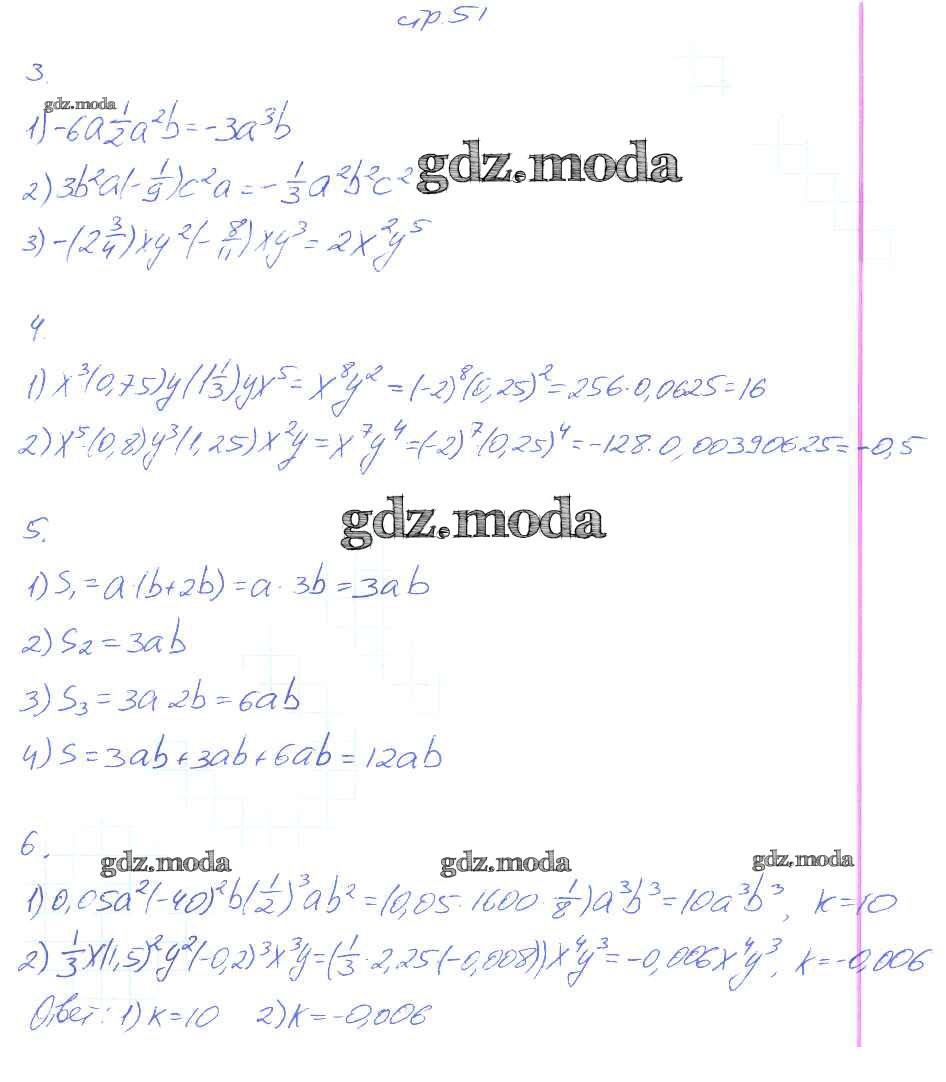 стр. 51
3.
gdz.moda
1) -6a 1/2 a²b = -3a³b
gdz.moda
2) 3b²a(-1/9)c²a = -1/3 a²b²c²
3) -(2 3/4)xy²(-8/11)xy³ = 2x²y⁵
4.
1) x³(0,75)y(1 1/3)yx⁵ = x⁸y² = (-2)⁸(0,25)² = 256·0,0625 = 16
2) x⁵·(0,8)y³(1,25)x²y = x⁷y⁴ = (-2)⁷(0,25)⁴ = -128·0,00390625 = -0,5
gdz.moda
5.
1) S₁ = a·(b+2b) = a·3b = 3ab
2) S₂ = 3ab
3) S₃ = 3a·2b = 6ab
4) S = 3ab + 3ab + 6ab = 12ab
6.
gdz.moda gdz.moda gdz.moda
1) 0,05a²(-40)²b(1/2)³ab² = (0,05·1600·1/8)a³b³ = 10a³b³, k = 10
2) 1/3 x(1,5)²y²(-0,2)³x³y = (1/3·2,25(-0,008))x⁴y³ = -0,006x⁴y³, k = -0,006
Ответ: 1) k = 10 2) k = -0,006